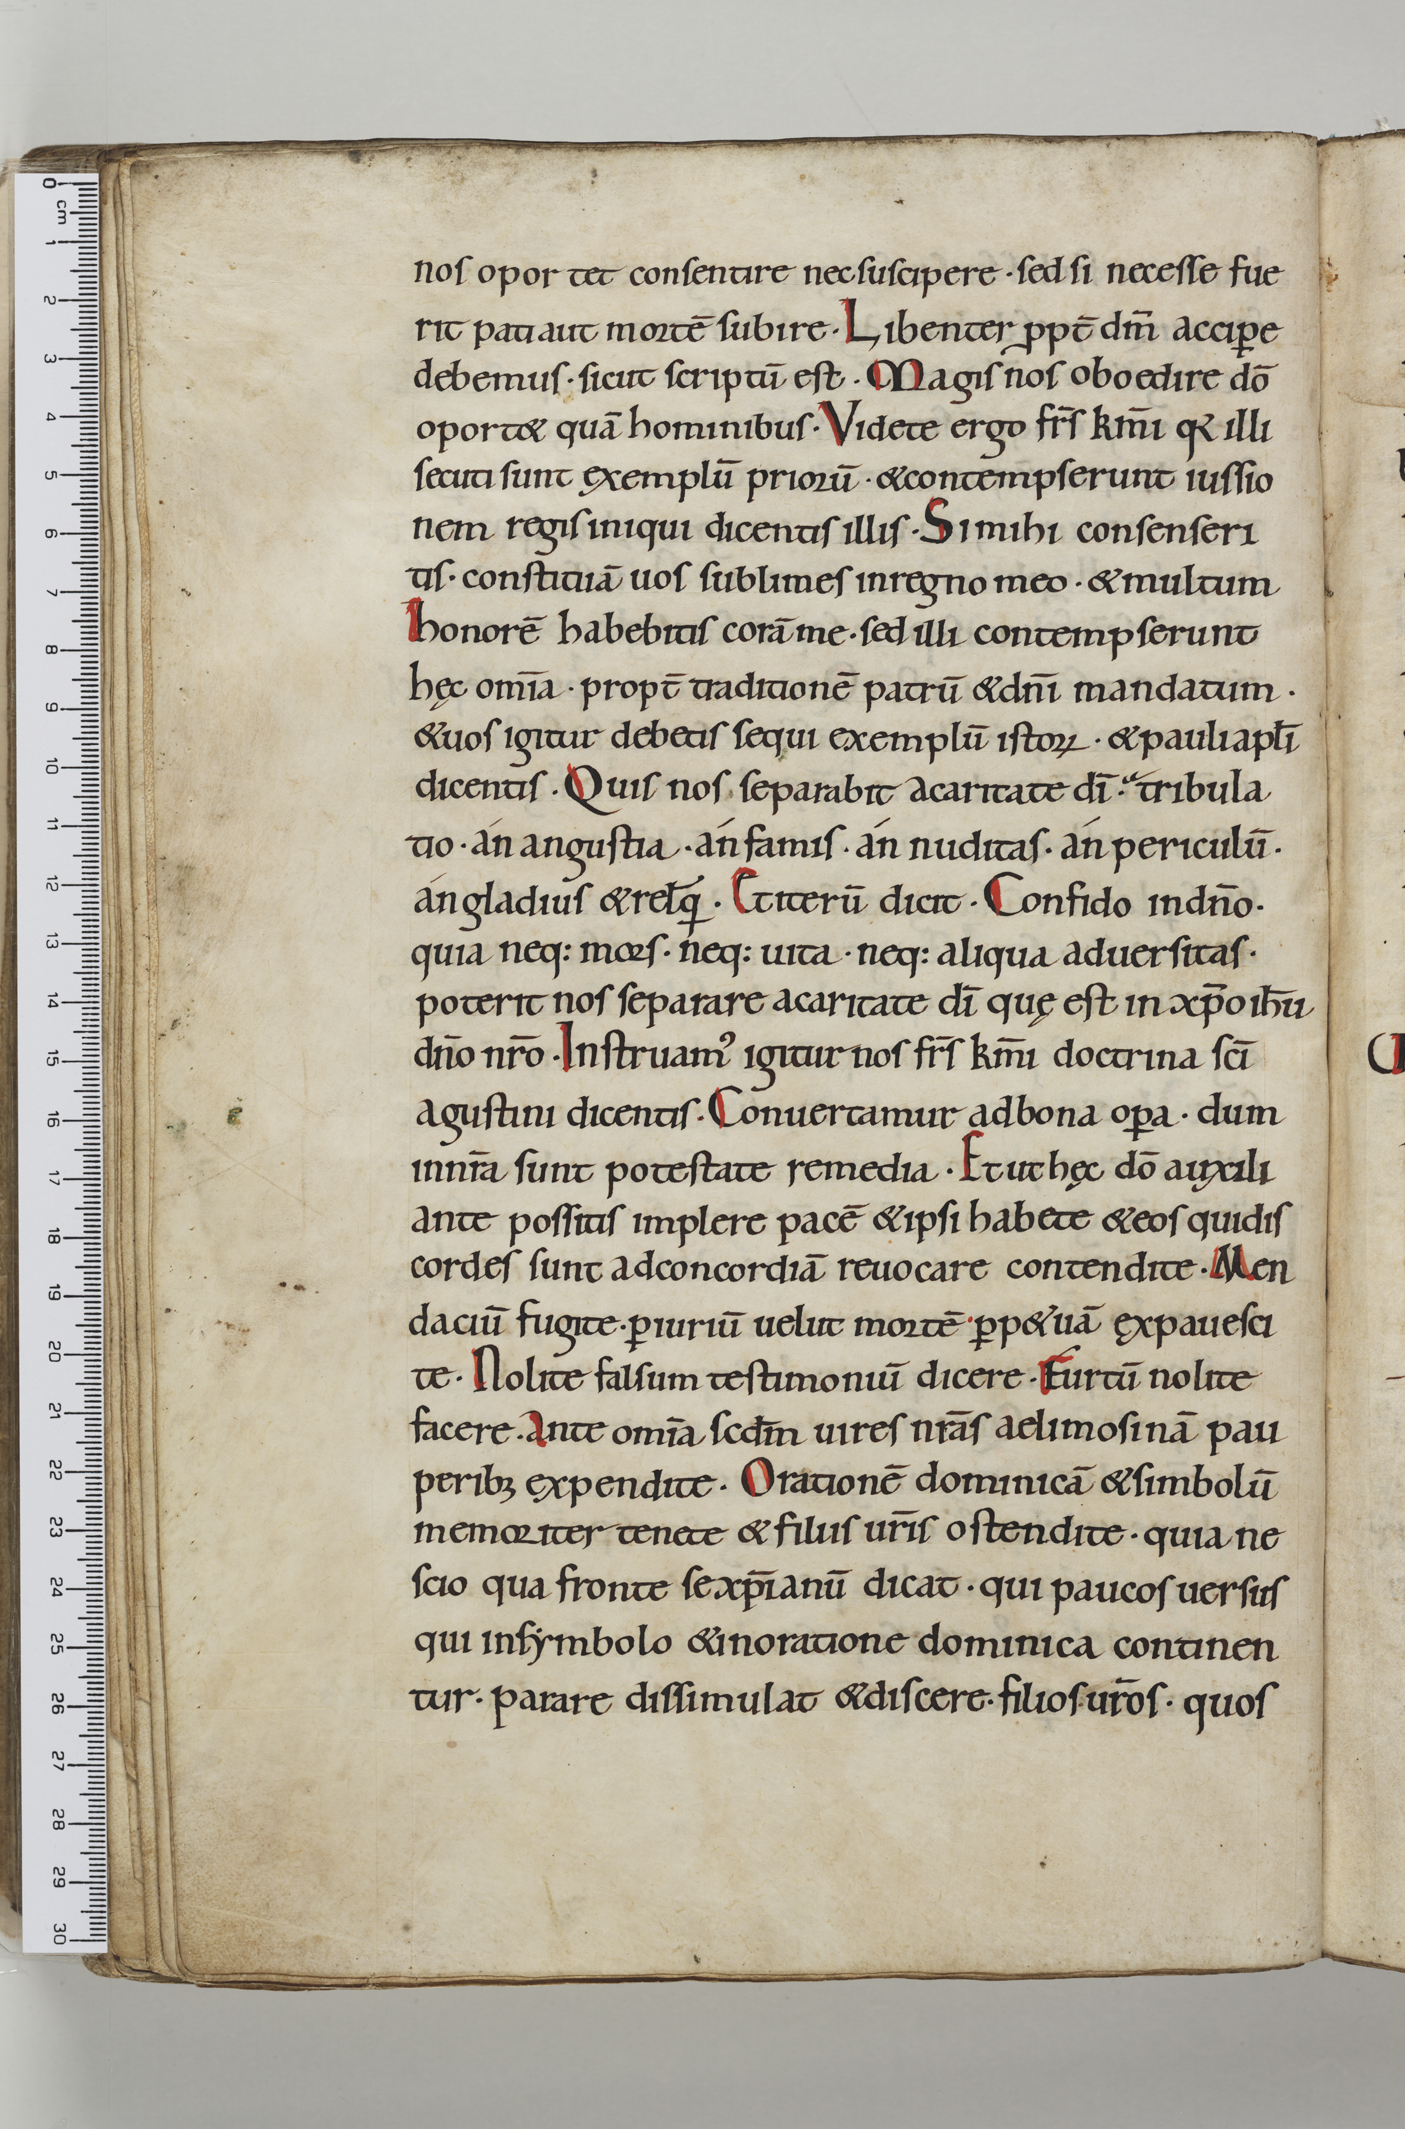 nos opor tet consentire nec suscipere · sed si necesse fue
rit pati aut mortē subire · Libenter ppt̄ dm̄ accip̄e
debemus · sicut scriptū est · Magis nos oboedire dō
oport& quā hominibus · Videte ergo fr̄s km̄i qR illi
secuti sunt ęxemplū priorū · &contempserunt iussio
nem regis iniqui dicentis illis · Si mihi consenseri
tis · constituā uos sublimes inregno meo · &multum
honorē habebitis corā me · sed illi contempserunt
hęc om̄ia · propt̄ traditionē patrū &dn̄i mandatum ·
&uos igitur debetis sequi exemplū istoꝝ · &pauli apl̄i
dicentis · Quis nos separabit acaritate dī · tribula
tio · án angustia · án famis · án nuditas · án periculū ·
án gladius &reliq̄ · Et iterū dicit · Confido indn̄o ·
quia neq: mors · neq: uita · neq: aliqua aduersitas ·
poterit nos separare acaritate dī quę est in xp̄o ih̄u
dn̄o nr̄o · Instruam᾿ igitur nos fr̄s km̄i doctrina sc̄i
agustini dicentis · Conuertamur adbona op̄a · dum
innr̄a sunt potestate remedia · Et ut hęc dō auxili
ante possitis implere pacē &ipsi habete &eos quidis
cordes sunt adconcordiā reuocare contendite · Men
daciū fugite · ꝑiuriū uelut mortē ꝑp&uā ęxpauesci
te · Nolite falsum testimoniū dicere · Furtū nolite
facere · Ante om̄ia scdm̄ uires nr̄as aelimosinā pau
peribꝫ ęxpendite · Orationē dominicā &simbolū
memoriter tenete & filiis ur̄is ostendite · quia ne
scio qua fronte se xp̄ianū dicat · qui paucos uersus
qui insẏmbolo &inoratione dominica continen
tur · parare dissimulat &discere · filios ur̄os · quos